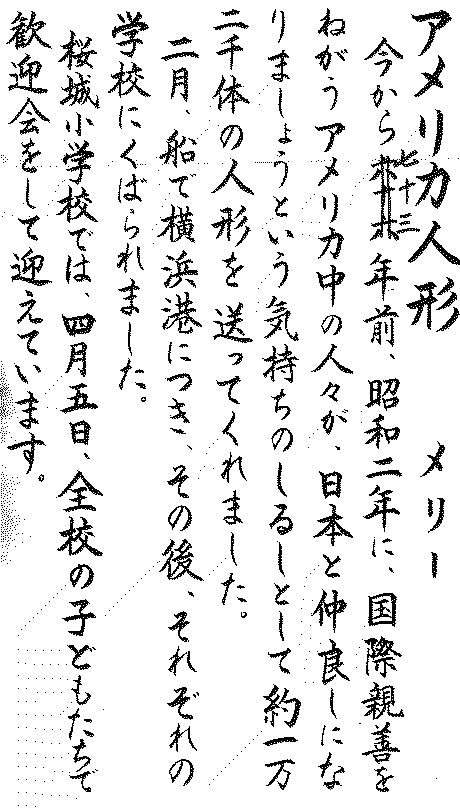 アメリカ人形　メリー
今から七十三年前、昭和二年に、国際親善を
ねがうアメリカ中の人々が、日本と仲良しにな
りましょうという気持ちのしるしとして約一万
二千体の人形を送ってくれました。
二月、船で横浜港につき、その後、それぞれの
学校にくばられました。
桜城小学校では、四月五日、全校の子どもたちで
歓迎会をして迎えています。